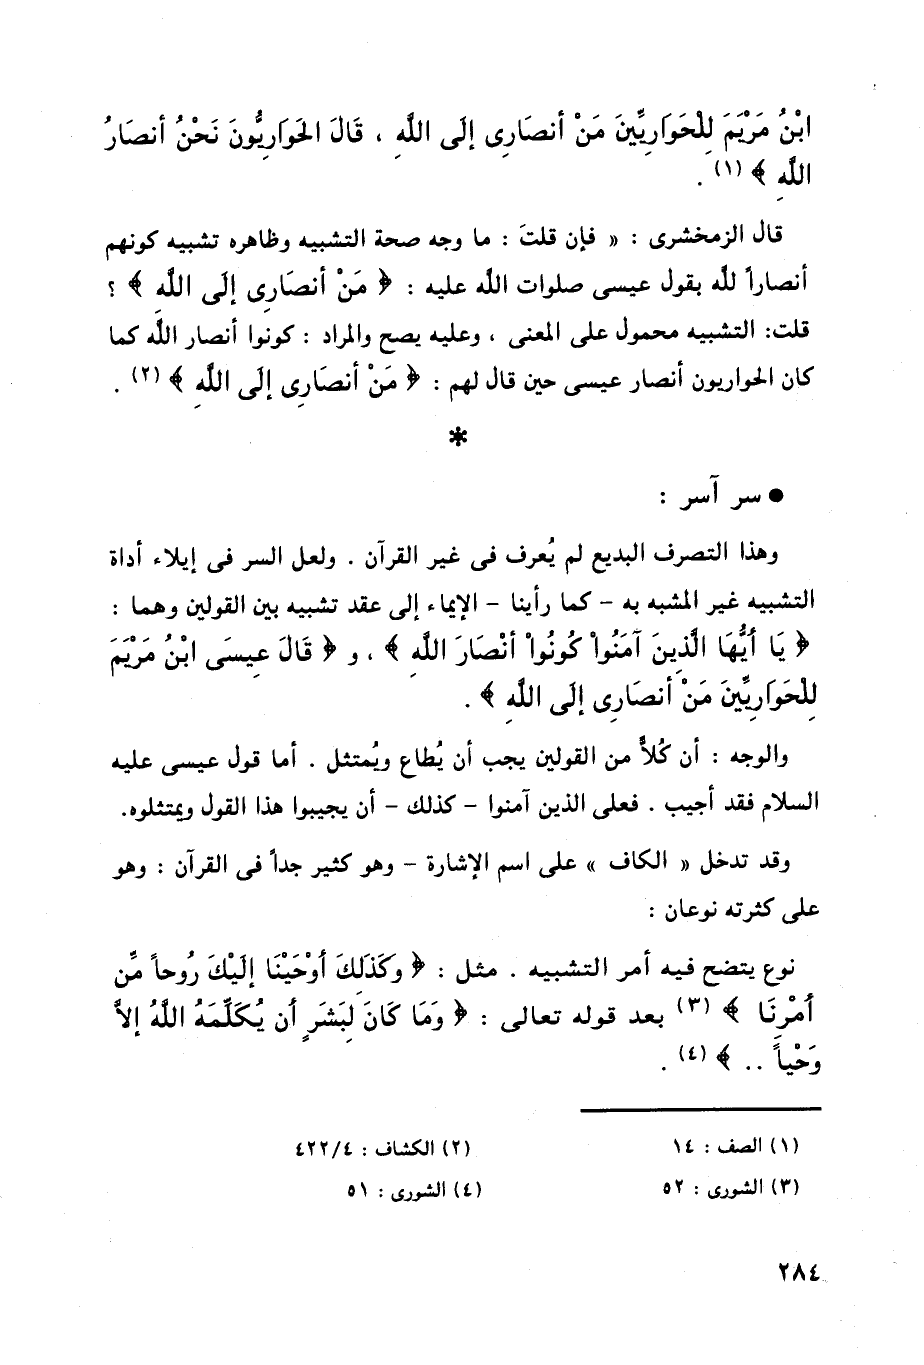 ابْنُ مَرْيَمَ لِلْحَوَارِيِّينَ مَنْ أنصَارِى إلَى اللَّهِ ، قَالَ الحَوَارِيُّونَ نَحْنُ أنصَارُ
اللَّهِ ﴾ (١) .
قال الزمخشرى : « فإن قلتَ : ما وجه صحة التشبيه وظاهره تشبيه كونهم
أنصاراً لله بقول عيسى صلوات الله عليه : ﴿ مَنْ أنصَارِى إلَى اللَّهِ ﴾ ؟
قلت: التشبيه محمول على المعنى ، وعليه يصح والمراد : كونوا أنصار الله كما
كان الحواريون أنصار عيسى حين قال لهم : ﴿ مَنْ أنصَارِى إلَى اللَّهِ ﴾ (٢) .
*
● سر آسر :
وهذا التصرف البديع لم يُعرف فى غير القرآن . ولعل السر فى إيلاء أداة
التشبيه غير المشبه به - كما رأينا - الإيماء إلى عقد تشبيه بين القولين وهما :
﴿ يَا أيُّهَا الَّذِينَ آمَنُواْ كُونُواْ أنْصَارَ اللَّهِ ﴾ ، و ﴿ قَالَ عِيسَى ابْنُ مَرْيَمَ
لِلْحَوَارِيِّينَ مَنْ أنصَارِى إلَى اللَّهِ ﴾ .
والوجه : أن كُلاًّ من القولين يجب أن يُطاع ويُمتثل . أما قول عيسى عليه
السلام فقد أجيب . فعلى الذين آمنوا - كذلك - أن يجيبوا هذا القول ويمتثلوه.
وقد تدخل « الكاف » على اسم الإشارة - وهو كثير جداً فى القرآن : وهو
على كثرته نوعان :
نوع يتضح فيه أمر التشبيه . مثل : ﴿ وكَذَلِكَ أوْحَيْنَا إلَيْكَ رُوحاً مِّن
أمْرِنَا ﴾ (٣) بعد قوله تعالى : ﴿ وَمَا كَانَ لِبَشَرٍ أن يُكَلِّمَهُ اللَّهُ إلاَّ
وَحْياً .. ﴾ (٤) .
(١) الصف : ١٤ (٢) الكشاف : ٤٢٢/٤
(٣) الشورى : ٥٢ (٤) الشورى : ٥١
٢٨٤